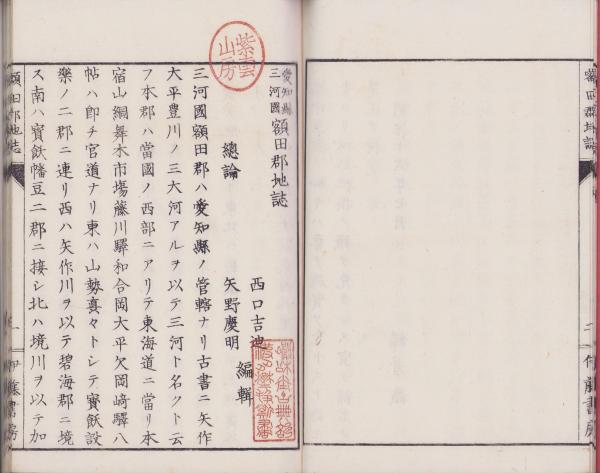 愛知縣
三河國
額田郡地誌
西口吉迪
矢野慶明
編輯
總論
三河國額田郡ハ愛知縣ノ管轄ナリ古書ニ矢作
大平豊川ノ三大河アルヲ以テ三河ト名クト云
フ本郡ハ當國ノ西部ニアリテ東海道ニ當リ本
宿山綱舞木市塲藤川驛和合岡大平欠岡﨑驛八
帖ハ即チ官道ナリ東ハ山勢嶷々トシテ寳飫設
樂ノ二郡ニ連リ西ハ矢作川ヲ以テ碧海郡ニ境
ス南ハ寳飫幡豆二郡ニ接シ北ハ境川ヲ以テ加
紫雲
山房
額田郡地誌
一
伊藤書房
額田郡地誌
二
伊藤書房